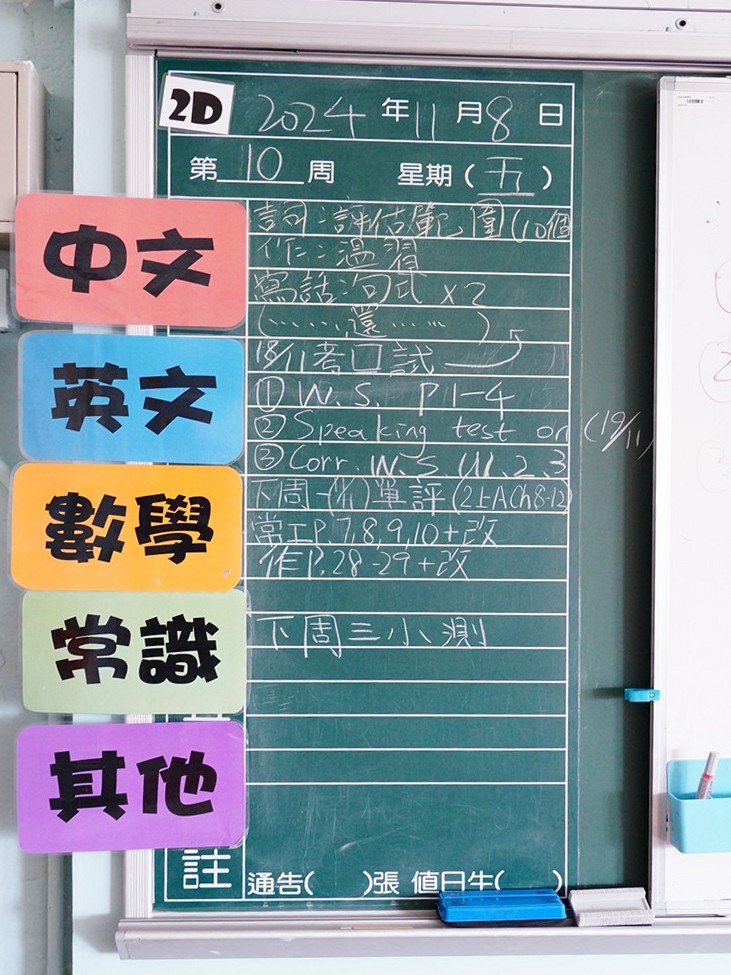 2D 2024年11月8日
第10周 星期(五)
中文
詞:評估範圍(10個
作:溫習
寫話:句式x2
(……還……)
18/11考口試
英文
① W.S. P1-4
② Speaking test on (19/11)
③ Corr. W.S. U1.2.3
數學
下周一(11/11)單評(2上A Ch8-12)
常工P.7,8,9,10+改
作P.28-29+改
常識
下周三小測
其他
註
通告( )張 值日生( )